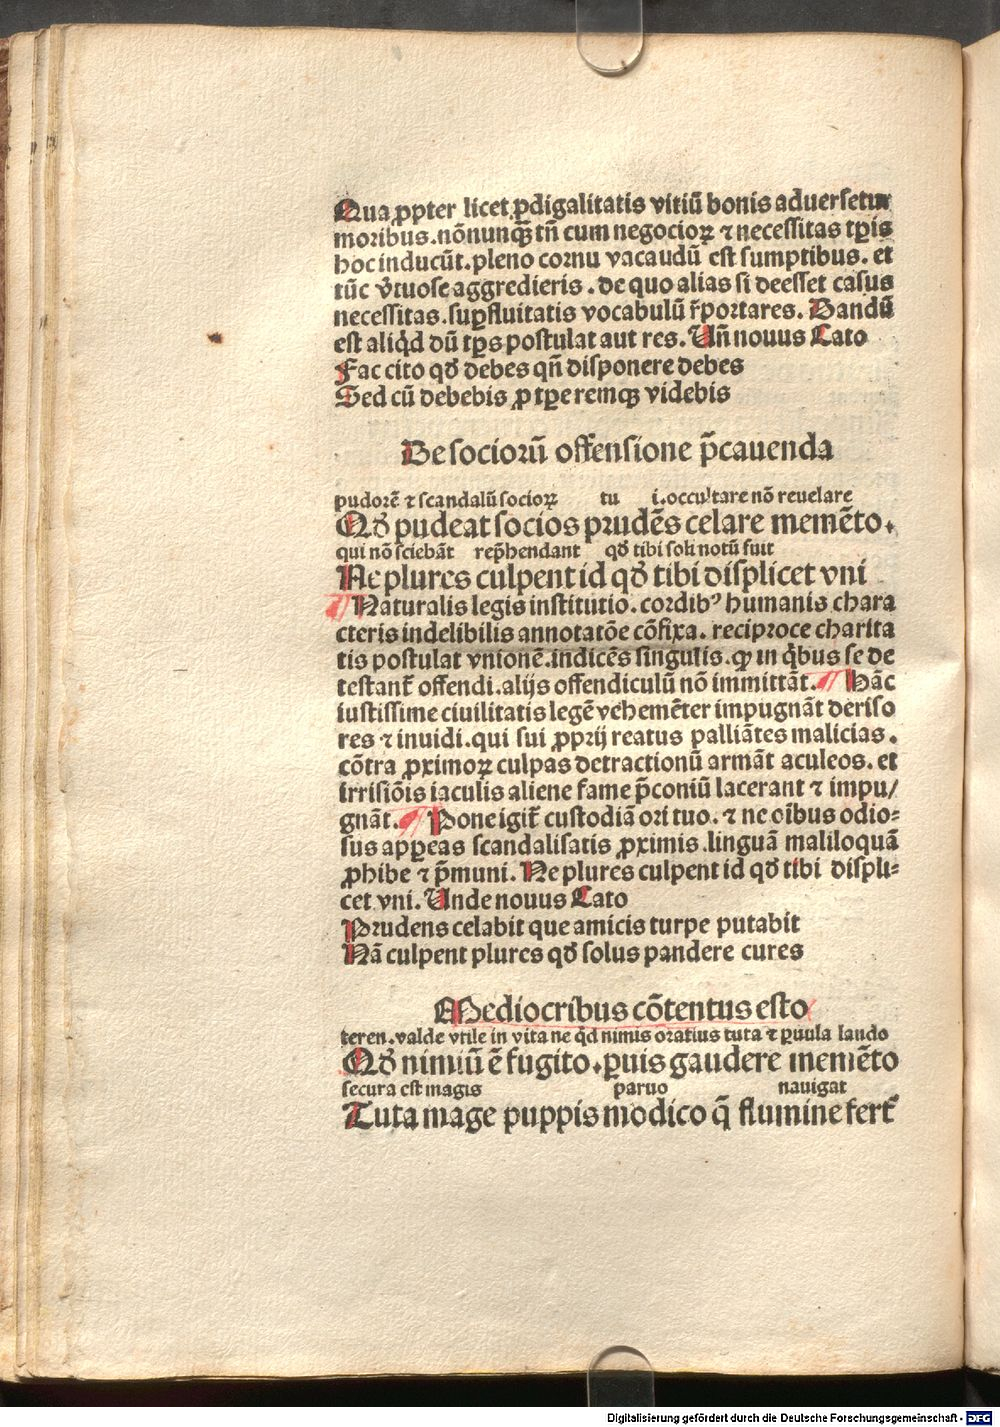 Qua ꝓpter licet ꝓdigalitatis vitiū bonis aduersetur
moribus. nōnunqꝫ tn̄ cum negocioꝝ ⁊ necessitas tꝑis
hoc inducūt. pleno cornu vacaudū est sumptibus. et
tūc v̓tuose aggredieris. de quo alias si deesset casus
necessitas. suꝑfluitatis vocabulū r̄portares. Dandū
est aliqͥd dū tꝑs postulat aut res. Vn̄ nouus Cato
Fac cito qd̓ debes qn̄ disponere debes
Sed cū debebis ꝓ tꝑe remqꝫ videbis
De sociorū offensione p̄cauenda
pudorē ⁊ scandalū socioꝝ tu i. occultare nō reuelare
Qd̓ pudeat socios prudēs celare memēto.
qui nō sciebāt rep̄hendant qd̓ tibi soli notū fuit
Ne plures culpent id qd̓ tibi displicet vni
¶ Naturalis legis institutio. cordibꝰ humanis chara
cteris indelibilis annotatōe cōfixa. reciproce charita
tis postulat vnionē. indicēs singulis. ꝙ in qͥbus se de
testant᷑ offendi. alijs offendiculū nō immittāt. ¶ Hāc
iustissime ciuilitatis legē vehemēter impugnāt deriso
res ⁊ inuidi. qui sui ꝓprij reatus palliātes malicias.
cōtra ꝓximoꝝ culpas detractionū armāt aculeos. et
irrisiōis iaculis aliene fame p̄coniū lacerant ⁊ impu/
gnāt. ¶ Pone igit᷑ custodiā ori tuo. ⁊ ne oībus odio⸗
sus appꝑeas scandalisatis ꝓximis. linguā maliloquā
ꝓhibe ⁊ p̄muni. Ne plures culpent id qd̓ tibi displi⸗
cet vni. Unde nouus Cato
Prudens celabit que amicis turpe putabit
Nā culpent plures qd̓ solus pandere cures
Mediocribus cōtentus esto
teren. valde vtile in vita ne qͥd nimis oratius tuta ⁊ ꝑuula laudo
Qd̓ nimiū ē fugito. ꝑuis gaudere memēto
secura est magis paruo nauigat
Tuta mage puppis modico q̄ flumine fert᷑
Digitalisierung gefördert durch die Deutsche Forschungsgemeinschaft - DFG